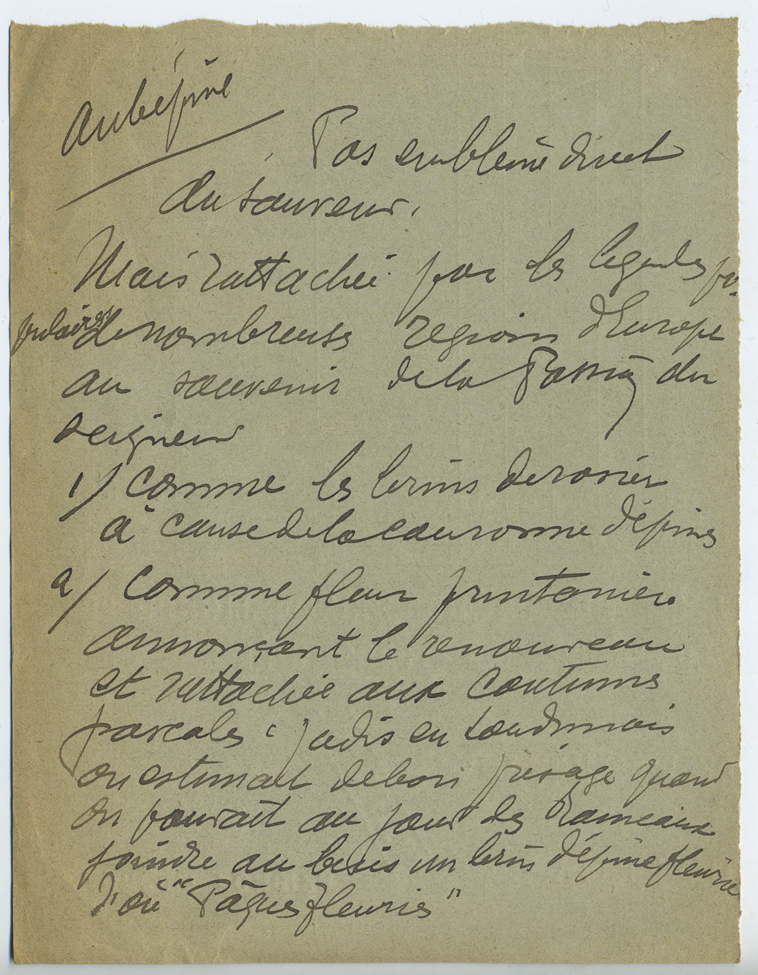 Aubépine
Pas emblème direct
du Sauveur.
Mais rattachée par les légendes po-
pulaires de nombreuses régions d'Europe
au souvenir de la Passion du
Seigneur
1/ comme les brins de rosier
à cause de la couronne d'épines
2/ comme fleur printanière
annonçant le renouveau
et rattachée aux coutumes
pascales : jadis en Loudunais
on estimait de bon présage quand
on pouvait au jour des Rameaux
joindre au buis un brin d'épine fleurie
d'où "Pâques fleuries"